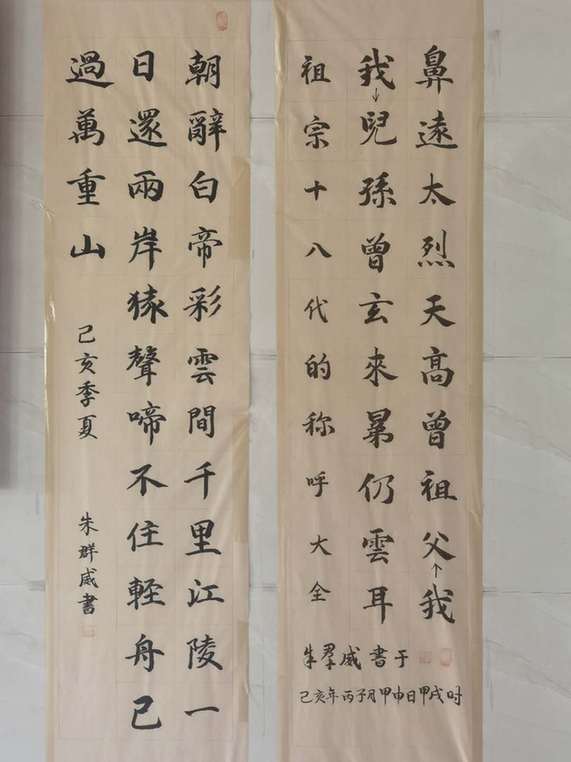 鼻遠太烈天高曾祖父↑我
我↓兒孫曾玄來晜仍雲耳
祖宗十八代的称呼大全
朱羣威書于
己亥年丙子月甲申日甲戌时
朝辭白帝彩雲間千里江陵一
日還兩岸猿聲啼不住輕舟已
過萬重山
己亥季夏
朱群威書